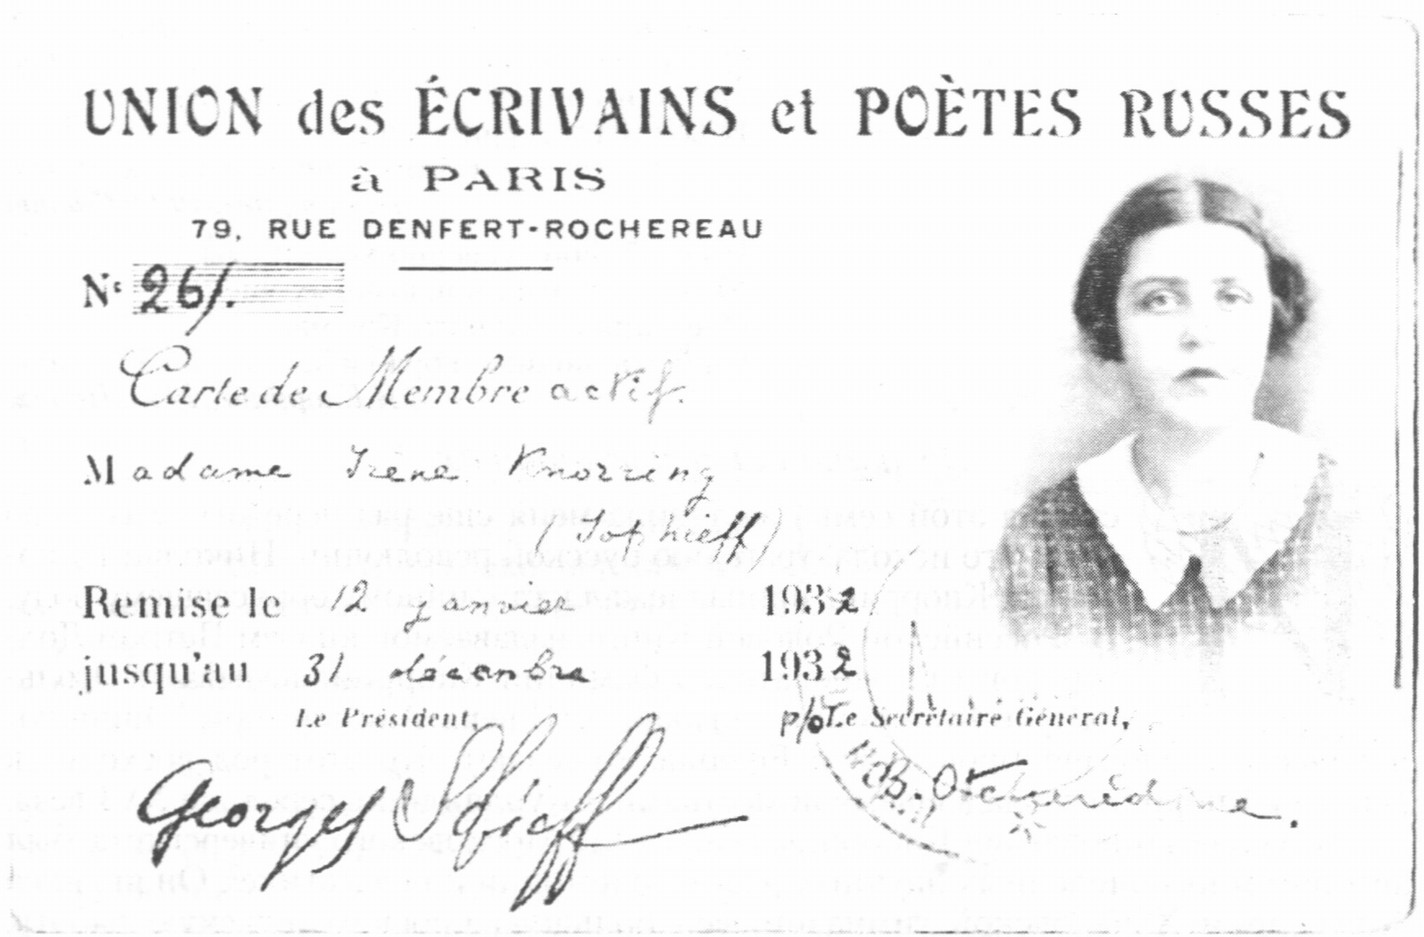 UNION des ÉCRIVAINS et POÈTES RUSSES
à PARIS
79, RUE DENFERT-ROCHEREAU
N° 261.
Carte de Membre actif.
Madame Irene Knorring
(Sophieff)
Remise le 12 janvier 1932
jusqu'au 31 décembre 1932
Le Président, p/o Le Secrétaire Général,
Georges Sofieff B.